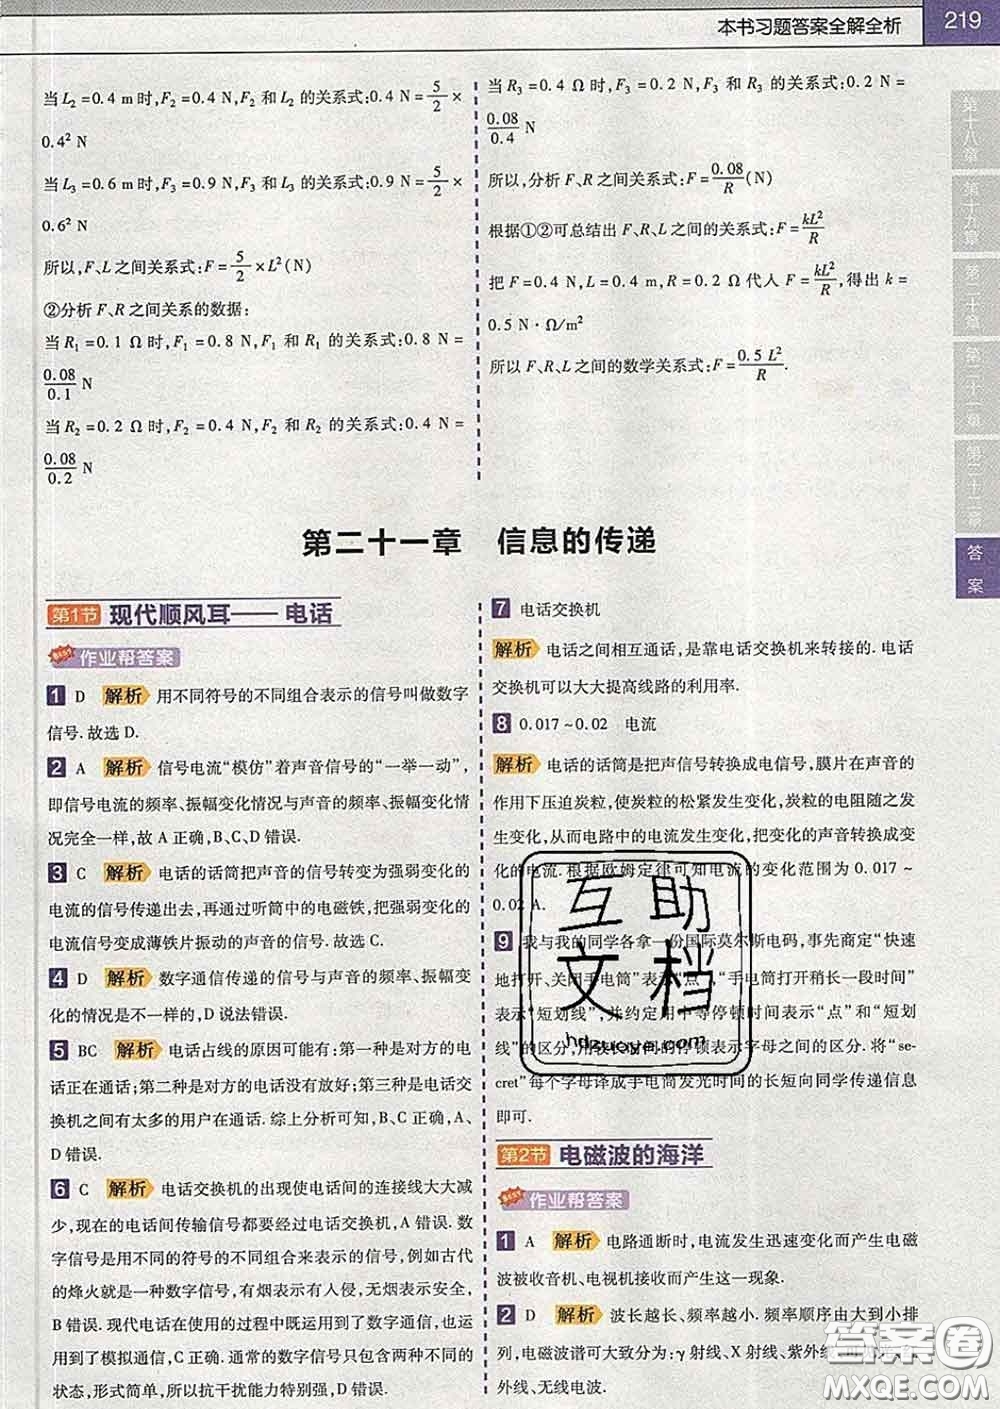 本书习题答案全解全析 219
当 L₂=0.4 m 时,F₂=0.4 N,F₂ 和 L₂ 的关系式:0.4 N=5/2×
0.4² N
当 L₃=0.6 m 时,F₃=0.9 N,F₃ 和 L₃ 的关系式:0.9 N=5/2×
0.6² N
所以,F、L 之间关系式:F=5/2×L²(N)
②分析 F、R 之间关系的数据:
当 R₁=0.1 Ω 时,F₁=0.8 N,F₁ 和 R₁ 的关系式:0.8 N=
0.08/0.1 N
当 R₂=0.2 Ω 时,F₂=0.4 N,F₂ 和 R₂ 的关系式:0.4 N=
0.08/0.2 N
当 R₃=0.4 Ω 时,F₃=0.2 N,F₃ 和 R₃ 的关系式:0.2 N=
0.08/0.4 N
所以,分析 F、R 之间关系式:F=0.08/R(N)
根据①②可总结出 F、R、L 之间的关系式:F=kL²/R
把 F=0.4 N,L=0.4 m,R=0.2 Ω 代人 F=kL²/R,得出 k=
0.5 N·Ω/m²
所以 F、R、L 之间的数学关系式:F=0.5 L²/R.
第十八章
第十九章
第二十章
第二十一章
第二十二章
答案
第二十一章 信息的传递
第1节 现代顺风耳——电话
作业帮答案
1 D 解析 用不同符号的不同组合表示的信号叫做数字
信号.故选 D.
2 A 解析 信号电流“模仿”着声音信号的“一举一动”,
即信号电流的频率、振幅变化情况与声音的频率、振幅变化情
况完全一样,故 A 正确,B、C、D 错误.
3 C 解析 电话的话筒把声音的信号转变为强弱变化的
电流的信号传递出去,再通过听筒中的电磁铁,把强弱变化的
电流信号变成薄铁片振动的声音的信号.故选 C.
4 D 解析 数字通信传递的信号与声音的频率、振幅变
化的情况是不一样的,D 说法错误.
5 BC 解析 电话占线的原因可能有:第一种是对方的电
话正在通话;第二种是对方的电话没有放好;第三种是电话交
换机之间有太多的用户在通话.综上分析可知,B、C 正确,A、
D 错误.
6 C 解析 电话交换机的出现使电话间的连接线大大减
少,现在的电话间传输信号都要经过电话交换机,A 错误.数
字信号是用不同的符号的不同组合来表示的信号,例如古代
的烽火就是一种数字信号,有烟表示有人侵,无烟表示安全,
B 错误.现代电话在使用的过程中既运用到了数字通信,也运
用到了模拟通信,C 正确.通常的数字信号只包含两种不同的
状态,形式简单,所以抗干扰能力特别强,D 错误.
7 电话交换机
解析 电话之间相互通话,是靠电话交换机来转接的.电话
交换机可以大大提高线路的利用率.
8 0.017~0.02 电流
解析 电话的话筒是把声信号转换成电信号,膜片在声音的
作用下压迫炭粒,使炭粒的松紧发生变化,炭粒的电阻随之发
生变化,从而电路中的电流发生变化,把变化的声音转换成变
化的电流.根据欧姆定律可知电流的变化范围为 0.017~
0.02 A.
9 我与我的同学各拿一份国际莫尔斯电码,事先商定“快速
地打开、关闭手电筒”表示“点”,“手电筒打开稍长一段时间”
表示“短划线”,并约定用中等停顿时间表示“点”和“短划
线”的区分,用较长时间的停顿表示字母之间的区分.将“se-
cret”每个字母译成手电筒发光时间的长短向同学传递信息
即可.
第2节 电磁波的海洋
作业帮答案
1 A 解析 电路通断时,电流发生迅速变化而产生电磁
波被收音机、电视机接收而产生这一现象.
2 D 解析 波长越长、频率越小.频率顺序由大到小排
列,电磁波谱可大致分为:γ 射线、X 射线、紫外线
外线、无线电波.
互助文档
hdzuoye.com
答案圈
MXQE.COM